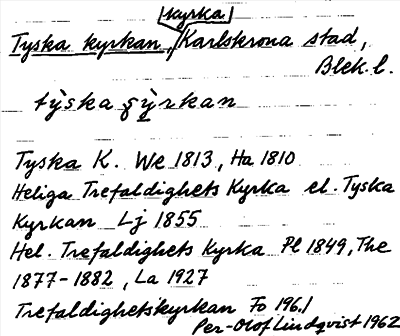 kyrka
Tyska kyrkan, Karlskrona stad,
Blek. l.
tỳska çỳrkan
Tyska K. We 1813, Ha 1810
Heliga Trefaldighets Kyrka el. Tyska
Kyrkan Lj 1855
Hel. Trefaldighets Kyrka Pl 1849, The
1877-1882, La 1927
Trefaldighetskyrkan Fo 1961
Per-Olof Lindqvist 1962